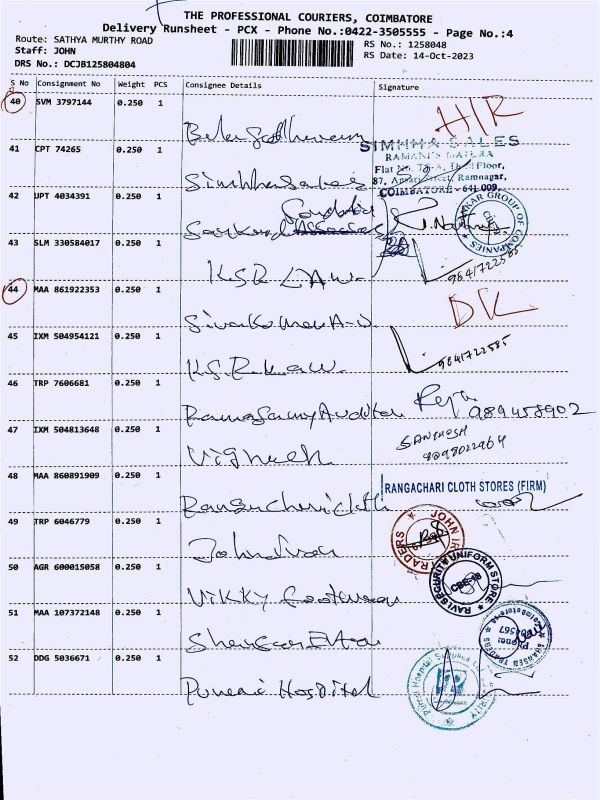 THE PROFESSIONAL COURIERS, COIMBATORE
Delivery Runsheet - PCX - Phone No.:0422-3505555 - Page No.:4
Route: SATHYA MURTHY ROAD
RS No.: 1258048
Staff: JOHN
RS Date: 14-Oct-2023
DRS No.: DCJB125804804
S No Consignment No Weight PCS Consignee Details Signature
40 SVM 3797144 0.250 1
H/R
41 CPT 74265 0.250 1
SIMHHA SALES
RAMANI'S
Flat No. Floor,
87, Ansari Street, Ramnagar,
COIMBATORE - 641 009.
42 UPT 4034391 0.250 1
GROUP OF COMPANIES
43 SLM 330584017 0.250 1
K.S.R LAW.
9641722585
44 MAA 861922353 0.250 1
DK
45 IXM 504954121 0.250 1
K.S.R LAW.
9641722585
46 TRP 7606681 0.250 1
Ramasamy Auditor
47 IXM 504813648 0.250 1
Vignesh
SANTHOSH
48 MAA 860891909 0.250 1
RANGACHARI CLOTH STORES (FIRM)
Rangachari cloth
49 TRP 6046779 0.250 1
JOHN TRADERS
50 AGR 600015058 0.250 1
Vikky Footwear
RAVI SECURITY UNIFORM STORE
CBE-18
51 MAA 107372148 0.250 1
TRADERS
Phone:
52 DDG 5036671 0.250 1
Hospital